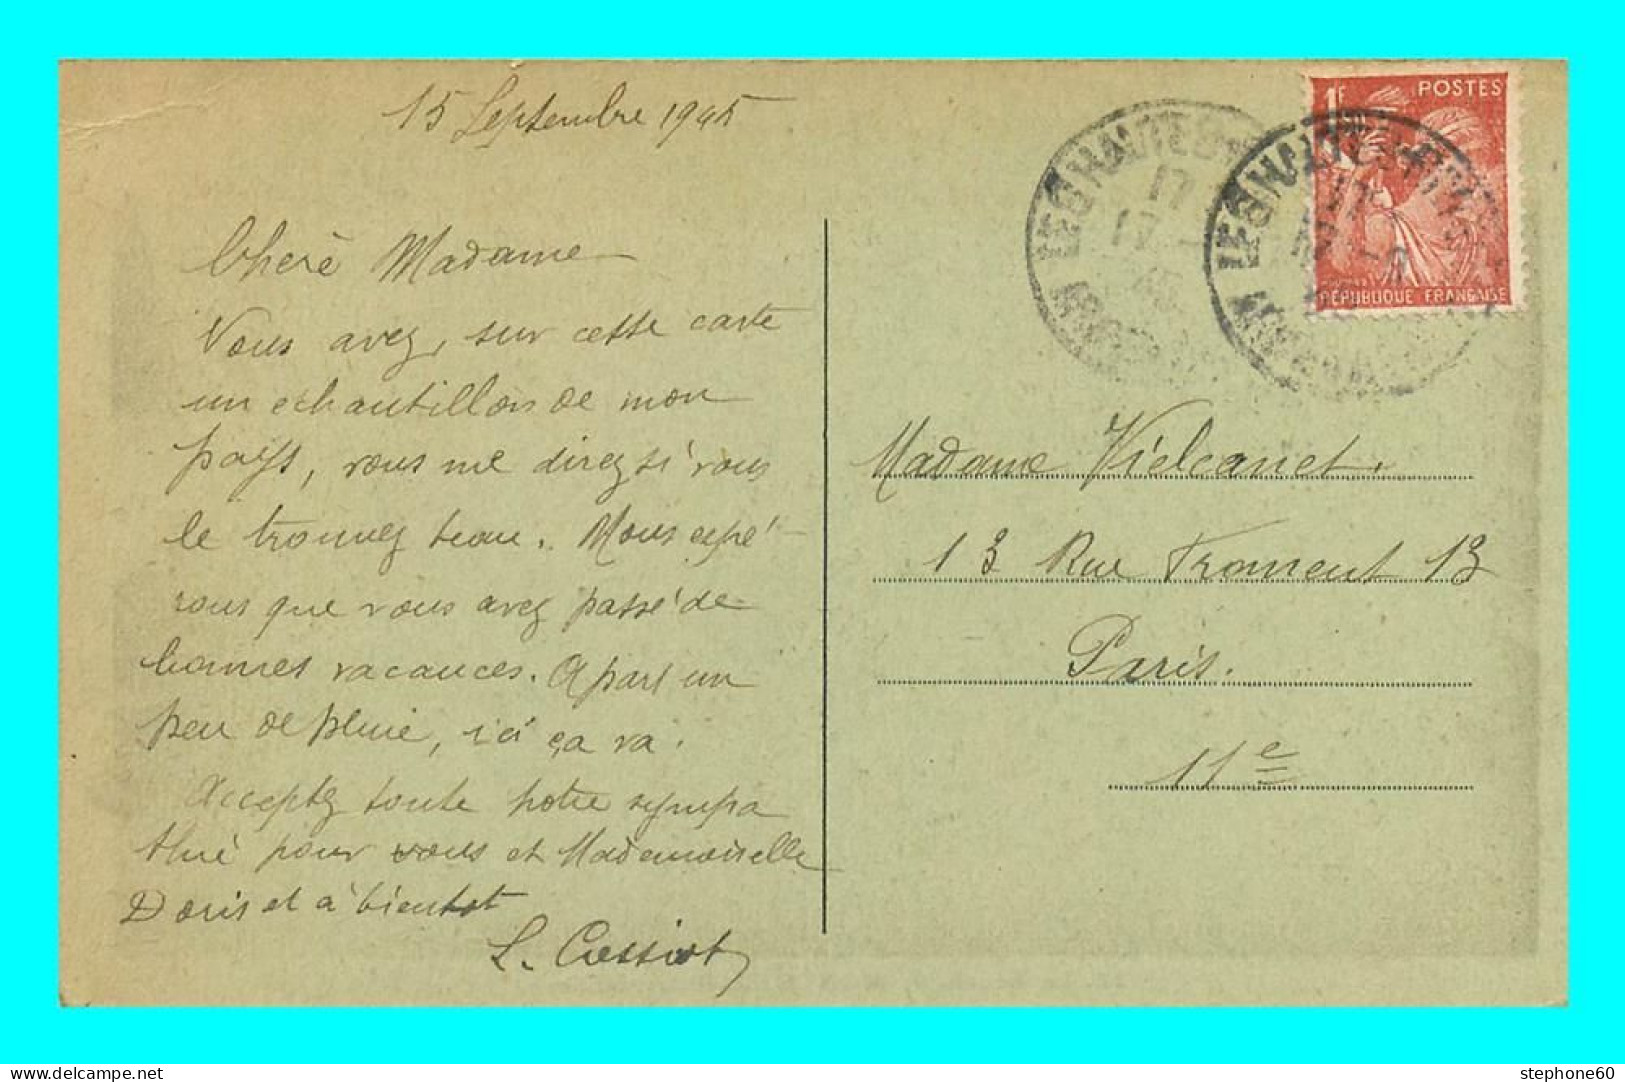 15 Septembre 1945
Cheré Madame
Vous avez, sur cette carte
un echantillon de mon
pays, vous me direz si vous
le trouvez beau. Nous espé-
rons que vous avez passé de
bonnes vacances. Apart un
peu de pluie, ici ça va.
Acceptez toute notre sympa
thie pour vous et Mademoiselle
Doris et à bientot
L. Cressiot
1F POSTES
RÉPUBLIQUE FRANÇAISE
17
Madame Vielcanet.
13 Rue Froment 13
Paris.
11e
delcampe.net
stephone60